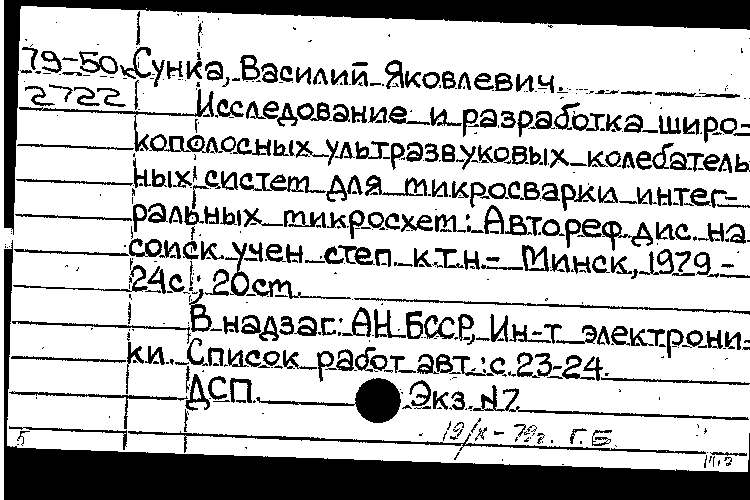 79-50 Сунка, Василий Яковлевич.
2722 Исследование и разработка широ-
кополосных ультразвуковых колебатель
ных систем для микросварки интег-
ральных микросхем: Автореф. дис. на
соиск. учен. степ. к.т.н. - Минск, 1979 -
24с.; 20см.
В надзаг: АН БССР, Ин-т электрони-
ки. Список работ авт.: с. 23-24.
ДСП. Экз. N7
19/X - 79г. Г.Б.